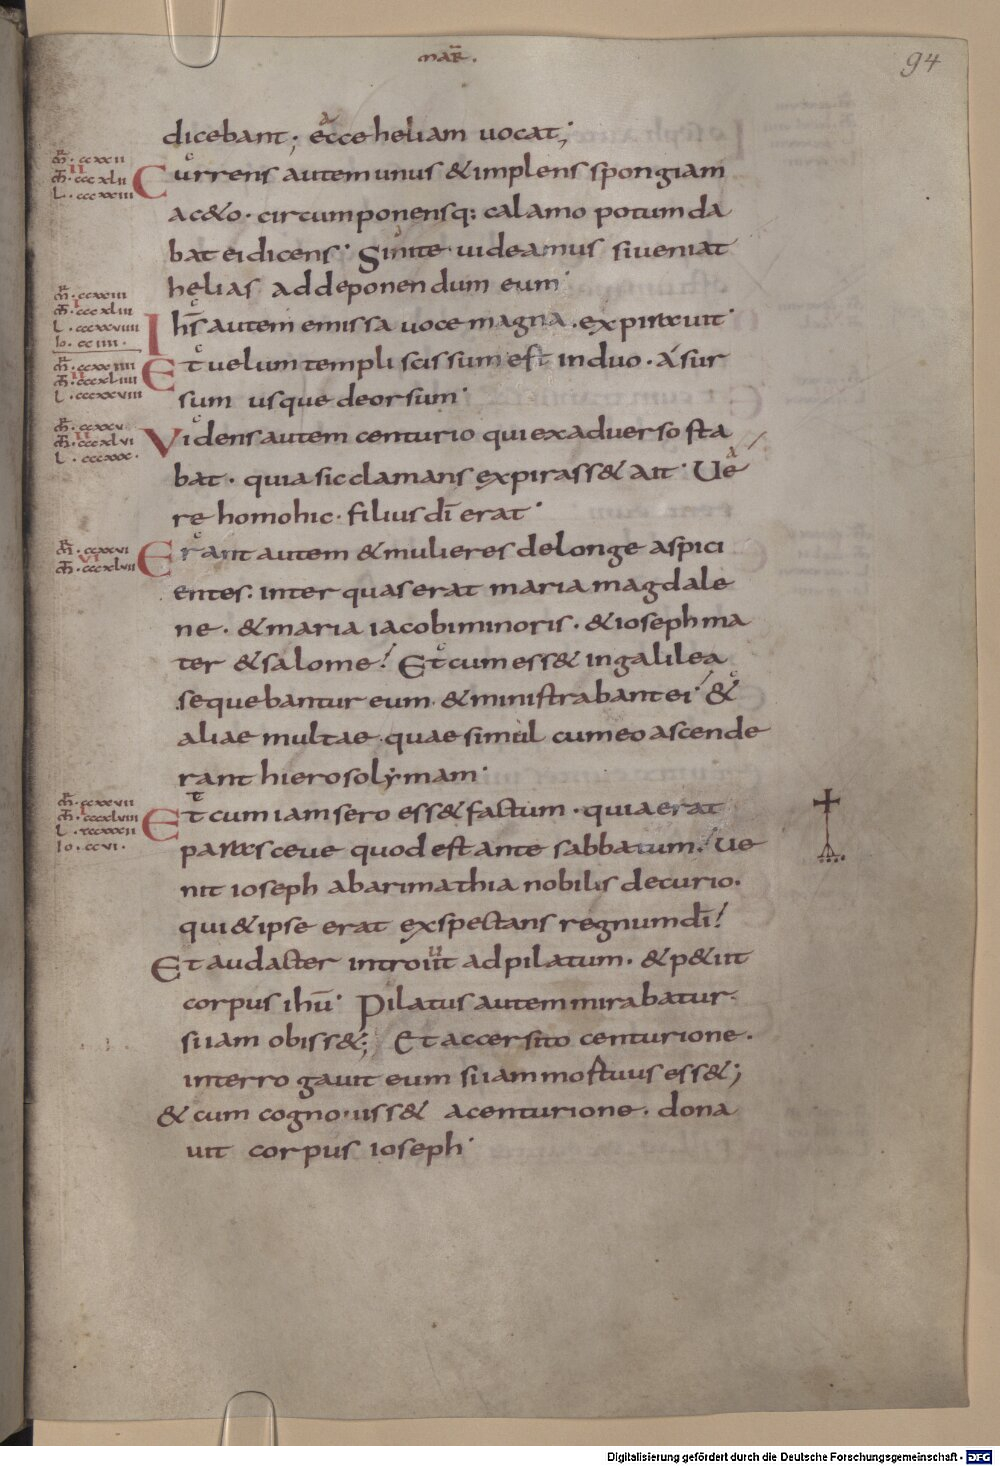 MAR̄.
94
dicebant; ecce heliam uocat;
m̄R. ccxxii
II
m̄T. cccxlii
L. cccxxiii
Currens autem unus & implens spongiam
ac&o. circumponensq; calamo potum da
bat ei dicens· Sinite uideamus si ueniat
helias ad deponendum eum·
m̄R. ccxxiii
I
m̄T. cccxliii
L. cccxxviiii
Io. cciiii.
Ihs̄ autem emissa uoce magna. expirauit·
m̄R. ccxxiiii
II
m̄T. cccxliiii
L. cccxxviii
Et uelum templi scissum est in duo. A sur
sum usque deorsum·
m̄R. ccxxv
II
m̄T. cccxlvi
L. cccxxx.
Videns autem centurio qui exaduerso sta
bat. quia sic clamans expirass& ait· Ue
re homo hic. filius dī erat·
m̄R. ccxxvi
VI
m̄T. cccxlvii
Erant autem & mulieres de longe aspici
entes: inter quas erat maria magdale
ne. & maria iacobi minoris. & ioseph ma
ter & salome! Et cum ess& in galilea
sequebantur eum. & ministrabant ei! &
aliae multae quae simul cum eo ascende
rant hierosolymam·
m̄R. ccxxvii
I
m̄T. cccxlviii
L. cccxxxii
Io. ccvi.
Et cum iam sero ess& factum. quia erat
parasceue quod est ante sabbatum! Ue
nit ioseph ab arimathia nobilis decurio.
qui & ipse erat exspectans regnum dī!
Et audacter introiit ad pilatum. & p&iit
corpus ihū· Pilatus autem mirabatur
si iam obiss&; Et accersito centurione.
interrogauit eum si iam mortuus ess&;
& cum cognouiss& a centurione. dona
uit corpus ioseph·
Digitalisierung gefördert durch die Deutsche Forschungsgemeinschaft - DFG